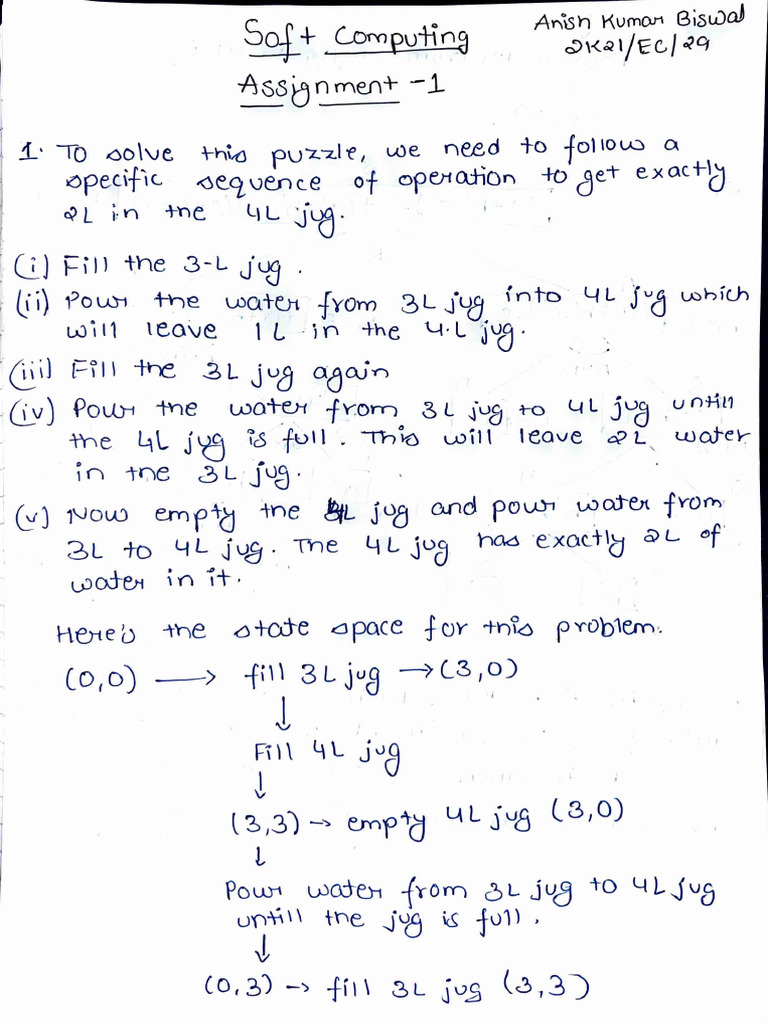 Soft Computing
Anish Kumar Biswal
2K21/EC/29
Assignment -1
1. To solve this puzzle, we need to follow a
specific sequence of operation to get exactly
2L in the 4L jug.
(i) Fill the 3-L jug.
(ii) Pour the water from 3L jug into 4L jug which
will leave 1L in the 4.L jug.
(iii) Fill the 3L jug again
(iv) Pour the water from 3L jug to 4L jug untill
the 4L jug is full. This will leave 2L water
in the 3L jug.
(v) Now empty the 4L jug and pour water from
3L to 4L jug. The 4L jug has exactly 2L of
water in it.
Here's the state space for this problem.
(0,0) → fill 3L jug → (3,0)
↓
Fill 4L jug
↓
(3,3) → empty 4L jug (3,0)
↓
Pour water from 3L jug to 4L jug
untill the jug is full.
↓
(0,3) → fill 3L jug (3,3)